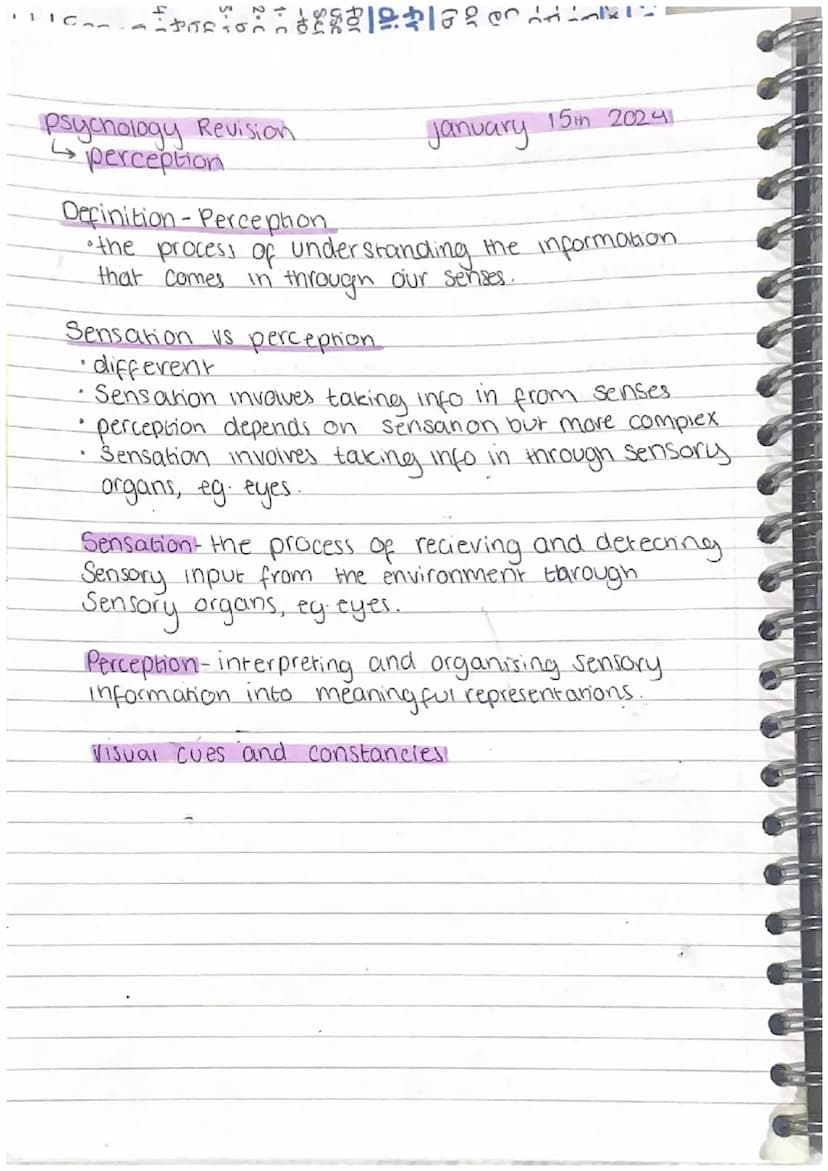 Psychology Revision
january 15th 2024
↳ perception
Definition - Perception
• the process of understanding the information
that comes in through our senses.
Sensation vs perception
• different
• Sensation involves taking info in from senses
• perception depends on sensation but more complex
• Sensation involves taking info in through sensory
organs, eg. eyes.
Sensation - the process of recieving and detecting
Sensory input from the environment through
Sensory organs, eg. eyes.
Perception - interpreting and organising sensory
information into meaningful representations.
Visual cues and constancies